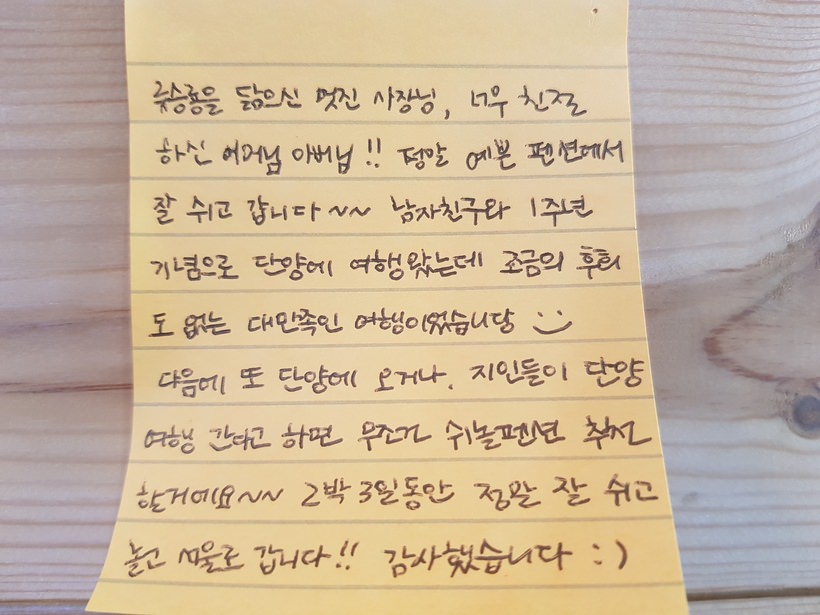 류승룡을 닮으신 멋진 사장님, 너무 친절
하신 어머님 아버님!! 정말 예쁜 펜션에서
잘 쉬고 갑니다~~ 남자친구와 1주년
기념으로 단양에 여행왔는데 조금의 후회
도 없는 대만족인 여행이었습니당 :)
다음에 또 단양에 오거나, 지인들이 단양
여행 간다고 하면 무조건 쉬놀펜션 추천
할거에요~~ 2박 3일동안 정말 잘 쉬고
놀고 서울로 갑니다!! 감사했습니다 :)